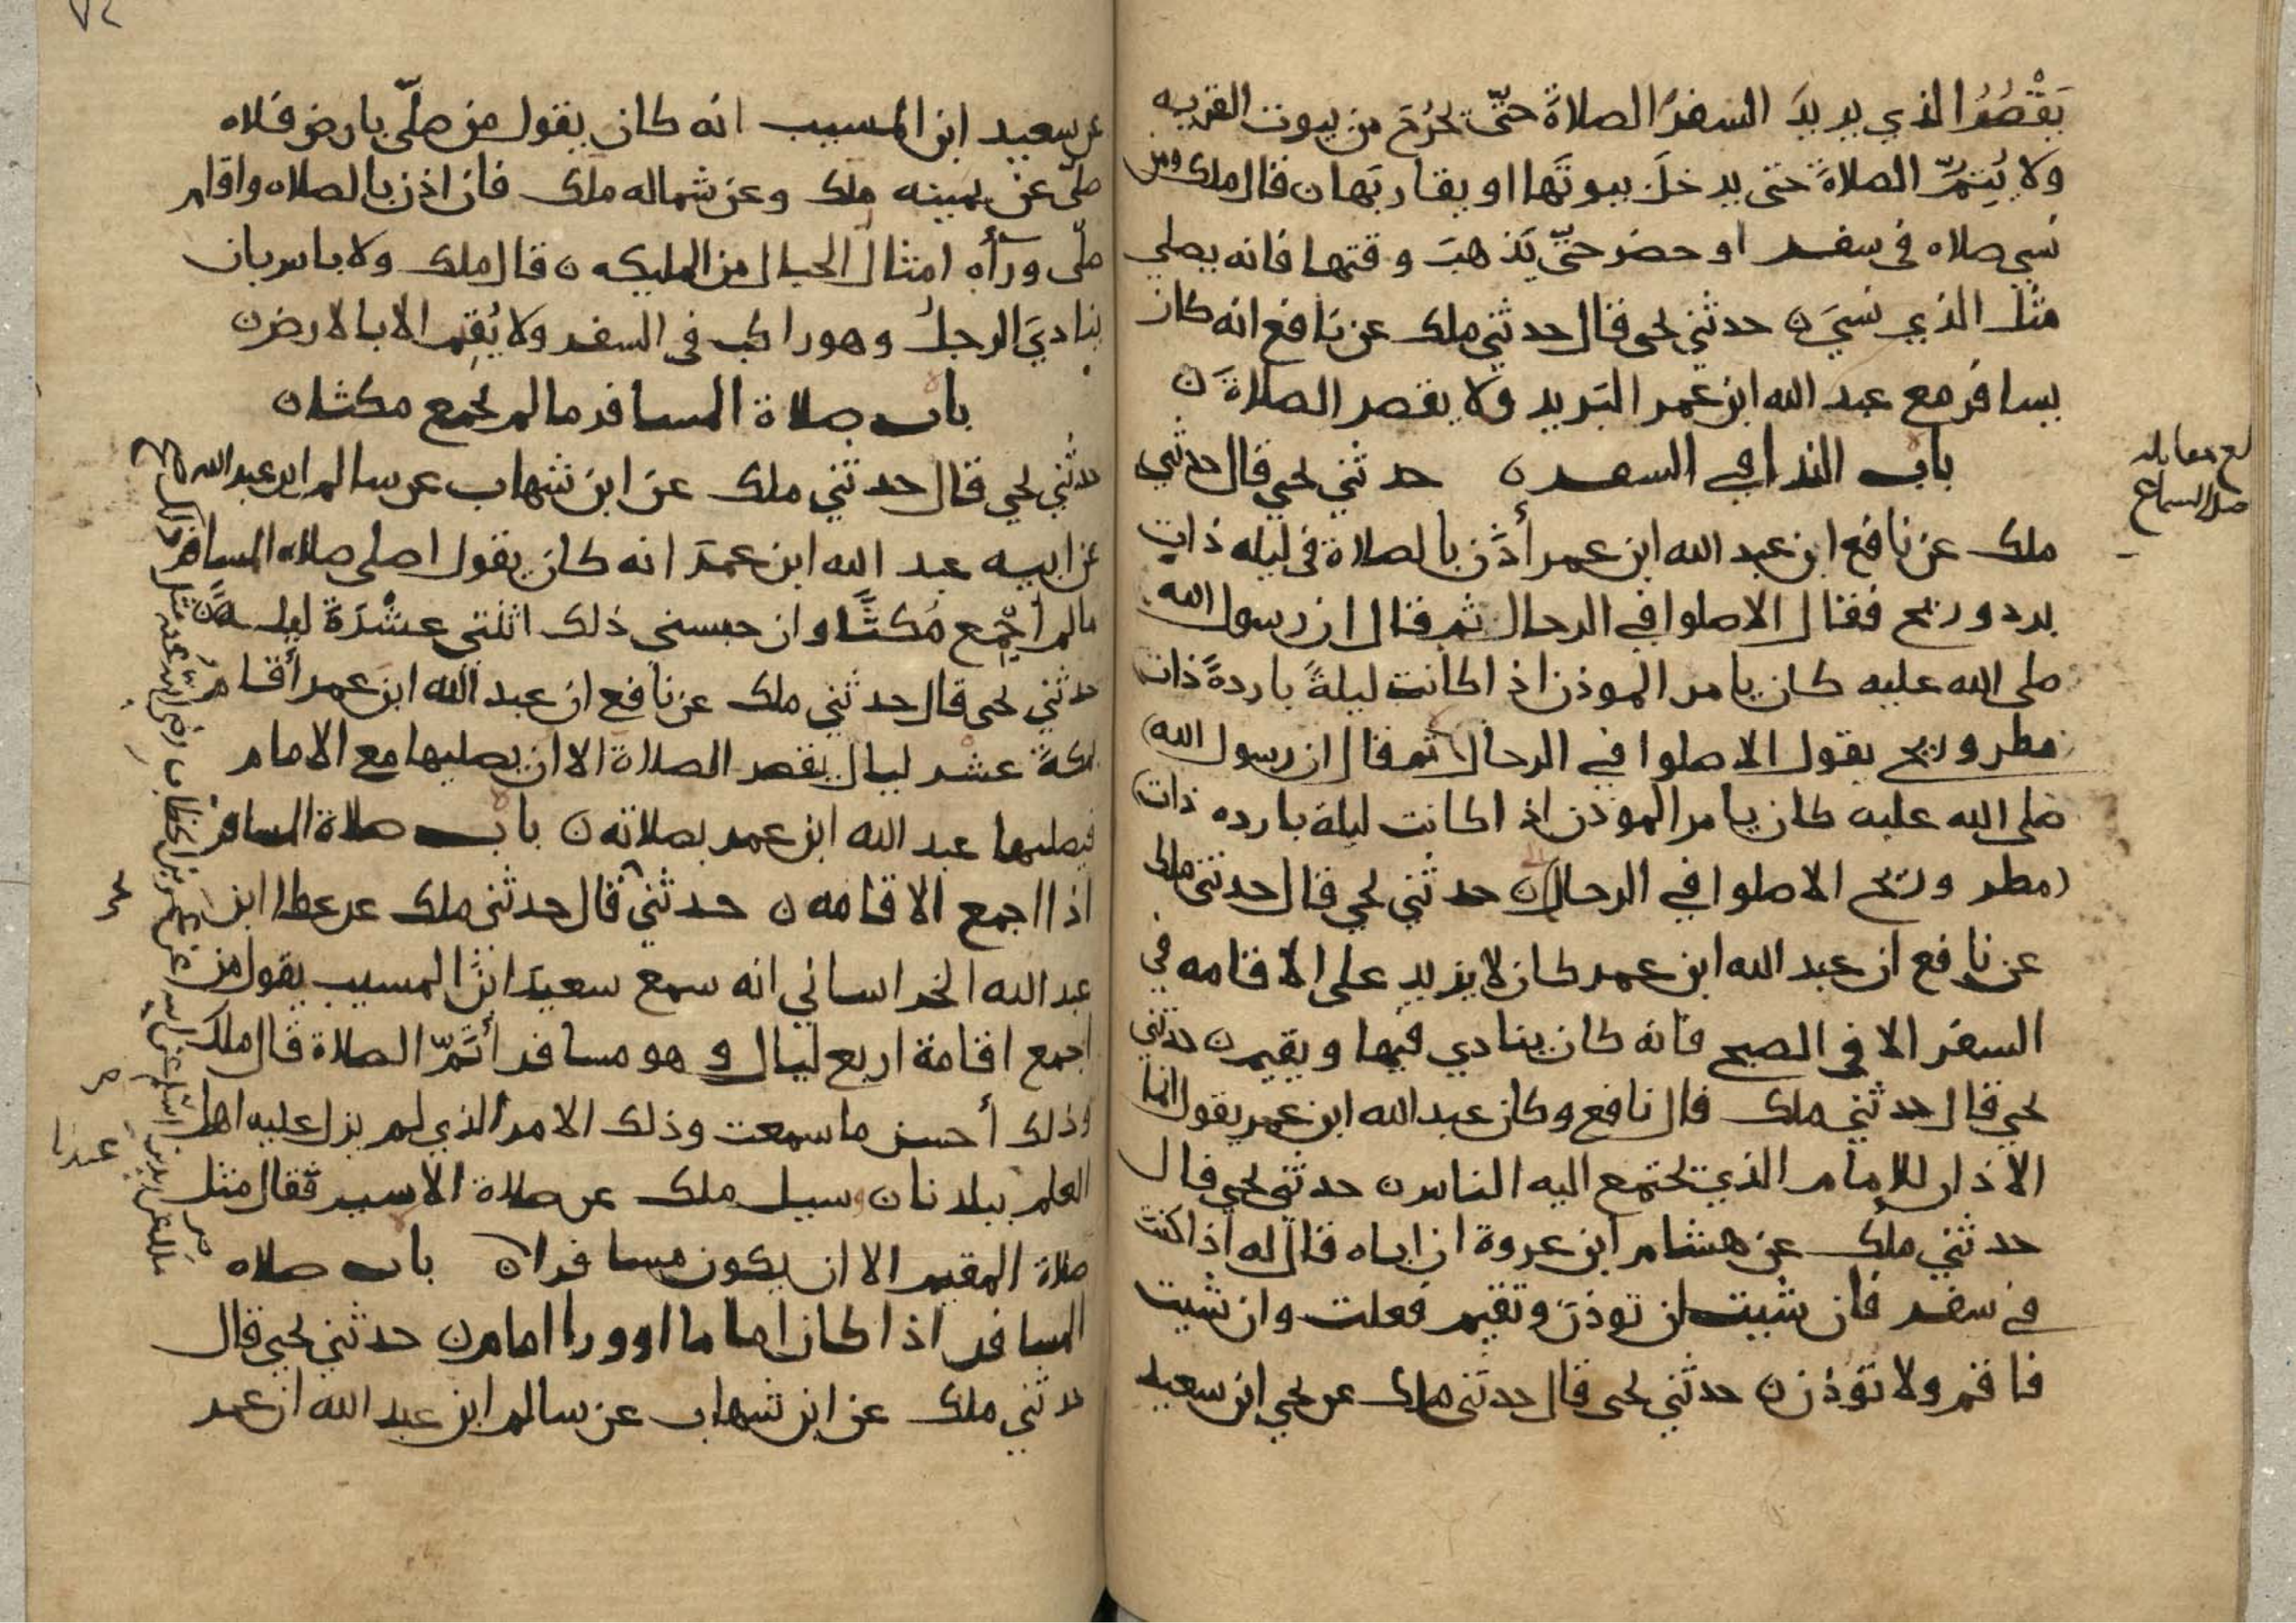 يَقْصُرُ الذي يريدَ السفرُ الصلاةَ حتّى يخرُجَ من بيوت القريه
ولا يُتِمُّ الصلاةَ حتى يدخلَ بيوتَها او يقاربَها ن قال ملك ومن
نسي صلاه في سفر او حضر حتّى يَذهبَ وقتها فانه يصلي
مثل الذي نسيَ ن حدثني يحيى قال حدثني ملك عن نافع انه كان
يسافر مع عبد الله ابن عمر البَريد ولا يقصر الصلاةَ ن
باب الندا في السفر ن حدثني يحيى قال حدثني
ملك عن نافع ان عبد الله ابن عمر أذّن بالصلاة في ليله ذات
برد وريح فقال الا صلوا في الرحال ثم قال ان رسول الله
صلى الله عليه كان يامر الموذن اذا كانت ليلةً باردةً ذات
مطر وريح يقول الا صلوا في الرحال ثم قال ان رسول الله
صلى الله عليه كان يامر الموذن اذا كانت ليلة بارده ذات
مطر وريح الا صلوا في الرحال ن حدثني يحيى قال حدثني ملك
عن نافع ان عبد الله ابن عمر كان لا يزيد على الاقامه في
السفر الا في الصبح فانه كان ينادي فيها ويقيم ن حدثني
يحيى قال حدثني ملك قال نافع وكان عبد الله ابن عمر يقول انما
الاذان للامام الذي يجتمع اليه الناس ن حدثني يحيى قال
حدثني ملك عن هشام ابن عروة ان اباه قال له اذا كنت
في سفر فان شيت ان توذن وتقيم فعلت وان شيت
فاقم ولا تؤذن ن حدثني يحيى قال حدثني ملك عن يحيى ابن سعيد
بلغ مقابله
السماع
عن سعيد ابن المسيب انه كان يقول من صلّى بارض فلاه
صلّى عن يمينه ملك وعن شماله ملك فان اذن بالصلاه واقام
صلّى ورآه امثال الجبال من المليكه ن قال ملك ولا باس بان
ينادي الرجلُ وهو راكب في السفر ولا يُقِم الا بالارض ن
باب صلاة المسافر ما لم يجمع مكثا ن
حدثني يحيى قال حدثني ملك عن ابن شهاب عن سالم ابن عبد الله
عن ابيه عبد الله ابن عمر انه كان يقول اصلي صلاه المسافر
ما لم أُجْمِع مُكثًا وان حبسني ذلك اثنتي عشْرَةَ ليلهً ن
حدثني يحيى قال حدثني ملك عن نافع ان عبد الله ابن عمر أقام
بمكةَ عشر ليال يقصر الصلاة الا ان يصليها مع الامام
فيصليها عبد الله ابن عمر بصلاته ن باب صلاة المسافر
اذا اجمع الاقامه ن حدثني قال حدثني ملك عن عطا ابن
عبد الله الخراساني انه سمع سعيدَ ابنَ المسيب يقول من
اجمع اقامة اربع ليال وهو مسافر أتَمّ الصلاة قال ملك
وذلك أحسن ما سمعت وذلك الامر الذي لم يزل عليه اهل
العلم ببلدنا ن وسيل ملك عن صلاة الاسير فقال مثل
صلاة المقيم الا ان يكون مسافرا ن باب صلاه
المسافر اذا كان اماما او ورا امام ن حدثني يحيى قال
حدثني ملك عن ابن شهاب عن سالم ابن عبد الله ان عمر
ملك عن زيد بن اسلم عن ابيه عن عمر بن الخطاب رضي الله عنه مثل ذلك صح
عندنا